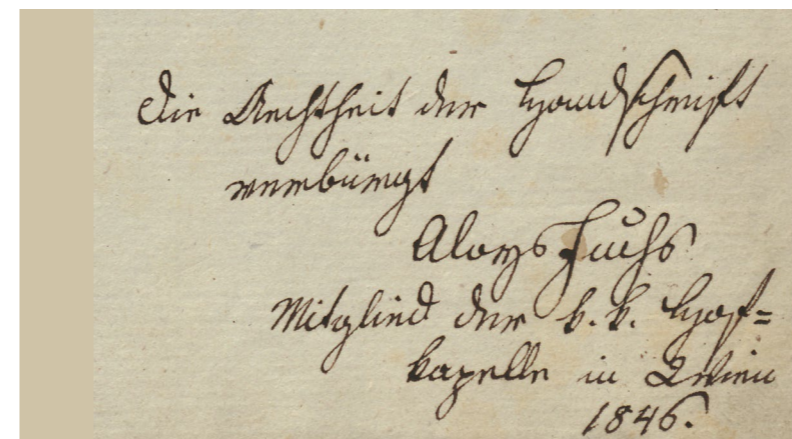 Die Aechtheit der Handschrift
verbürgt
Aloys Fuchs
Mitglied der k. k. Hof=
kapelle in Wien
1846.